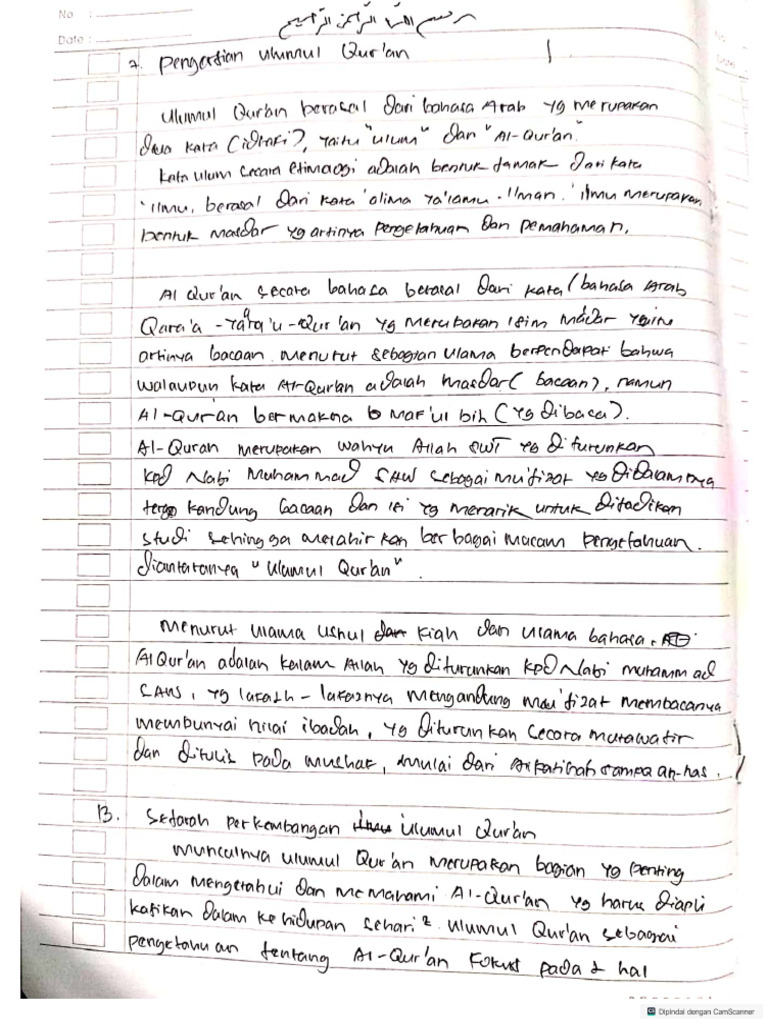 No :
Date :
بسم الله الرحمن الرحيم
7. Pengertian ulumul Qur'an
Ulumul Qur'an berasal dari bahasa Arab yg merupakan
dua kata (idhafi), yaitu "ulum" dan "Al-Qur'an"
kata ulum secara etimologi adalah bentuk jamak dari kata
'ilmu, berasal dari kata 'alima ya'lamu - ilman. 'ilmu merupakan
bentuk masdar yg artinya pengetahuan dan pemahaman.
Al Qur'an secara bahasa berasal dari kata (bahasa Arab
Qara'a - Yaqra'u - Qur'an yg merupakan isim masdar yaitu
artinya bacaan. menurut sebagian ulama berpendapat bahwa
walaupun kata Al-Qur'an adalah masdar (bacaan), namun
Al-Qur'an bermakna maf'ul bih (yg dibaca).
Al-Quran merupakan wahyu Allah SWT yg diturunkan
kpd Nabi Muhammad SAW sebagai mu'jizat yg didalamnya
terkandung bacaan dan isi yg menarik untuk dijadikan
studi sehingga melahirkan berbagai macam pengetahuan.
diantaranya "ulumul Qur'an".
Menurut ulama ushul fiqh dan ulama bahasa.
Al Qur'an adalah kalam Allah yg diturunkan kpd Nabi muhammad
SAW, yg lafazh-lafaznya mengandung mu'jizat membacanya
membunyai nilai ibadah, yg diturunkan secara mutawatir
dan ditulis pada mushaf, mulai dari Al fatihah sampa an-nas.
B. Sejarah perkembangan Ulumul Qur'an
Munculnya ulumul Qur'an merupakan bagian yg penting
dalam mengetahui dan memahami Al-Qur'an yg harus diapli
kasikan dalam kehidupan sehari². ulumul Qur'an sebagai
pengetahuan tentang Al-Qur'an fokus pada 2 hal
Dipindai dengan CamScanner